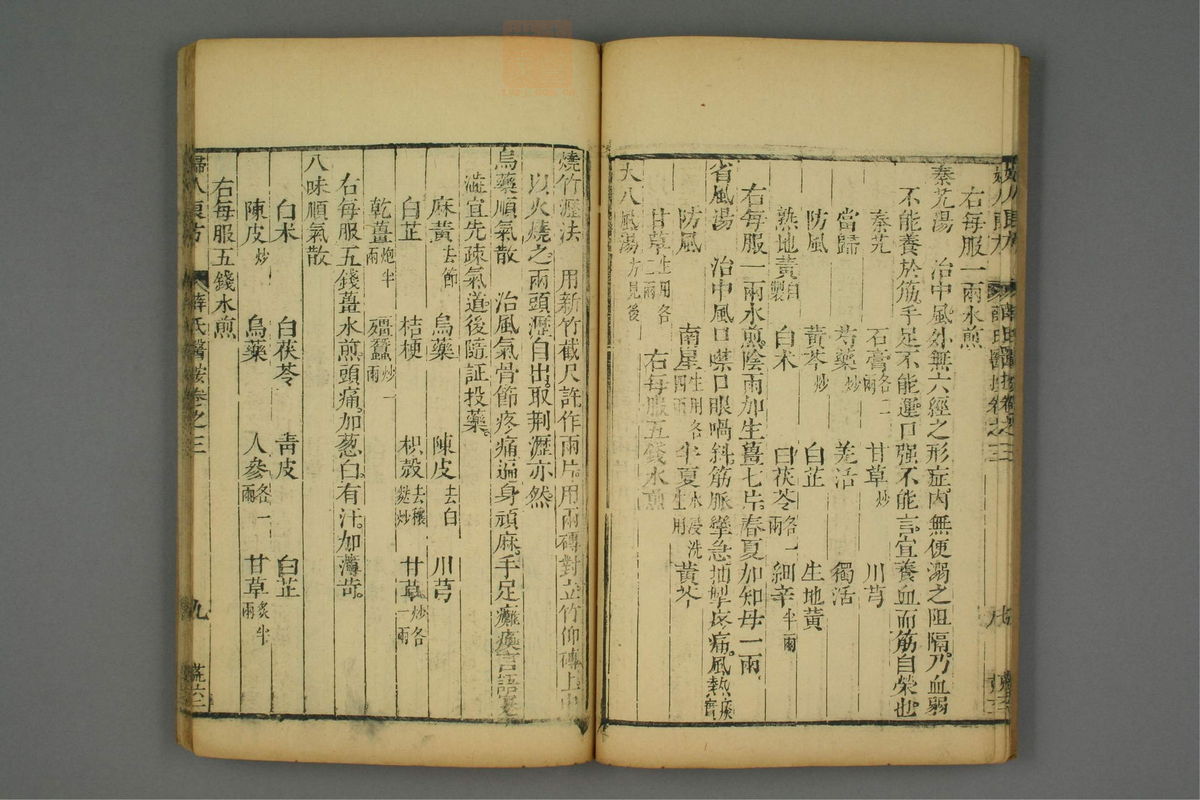 右每服一兩水煎
秦艽湯 治中風外無六經之形症內無便溺之阻隔乃血弱
不能養於筋手足不能運口强不能言宜養血而筋自榮也
秦艽 石膏各二兩 甘草炒 川芎
當歸 芍藥炒 羗活 獨活
防風 黃芩炒 白芷 生地黃
熟地黃自製 白术 白茯苓各一兩 細辛半兩
右每服一兩水煎陰雨加生薑七片春夏加知母一兩
省風湯 治中風口噤口眼喎斜筋脈攣急抽掣疼痛風熱痰實
防風 南星生用各四兩 半夏水浸洗生用 黃芩
甘草生用各二兩 右每服五錢水煎
大八風湯方見後
燒竹瀝法 用新竹截尺許作兩片用兩磚對立竹仰磚上
以火燒之兩頭瀝自出取荆瀝亦然
烏藥順氣散 治風氣骨節疼痛遍身頑麻手足癱瘓言語蹇
澁宜先疎氣道後隨証投藥
麻黃去節 烏藥 陳皮去白 川芎
白芷 桔梗 枳殼去穰麩炒 甘草炒各一兩
乾薑炮半兩 殭蠶炒一兩
右每服五錢薑水煎頭痛加葱白有汗加薄苛
八味順氣散
白术 白茯苓 靑皮 白芷
陳皮炒 烏藥 人參各一兩 甘草炙半兩
右每服五錢水煎
婦人良方 薛氏醫按卷之三 九